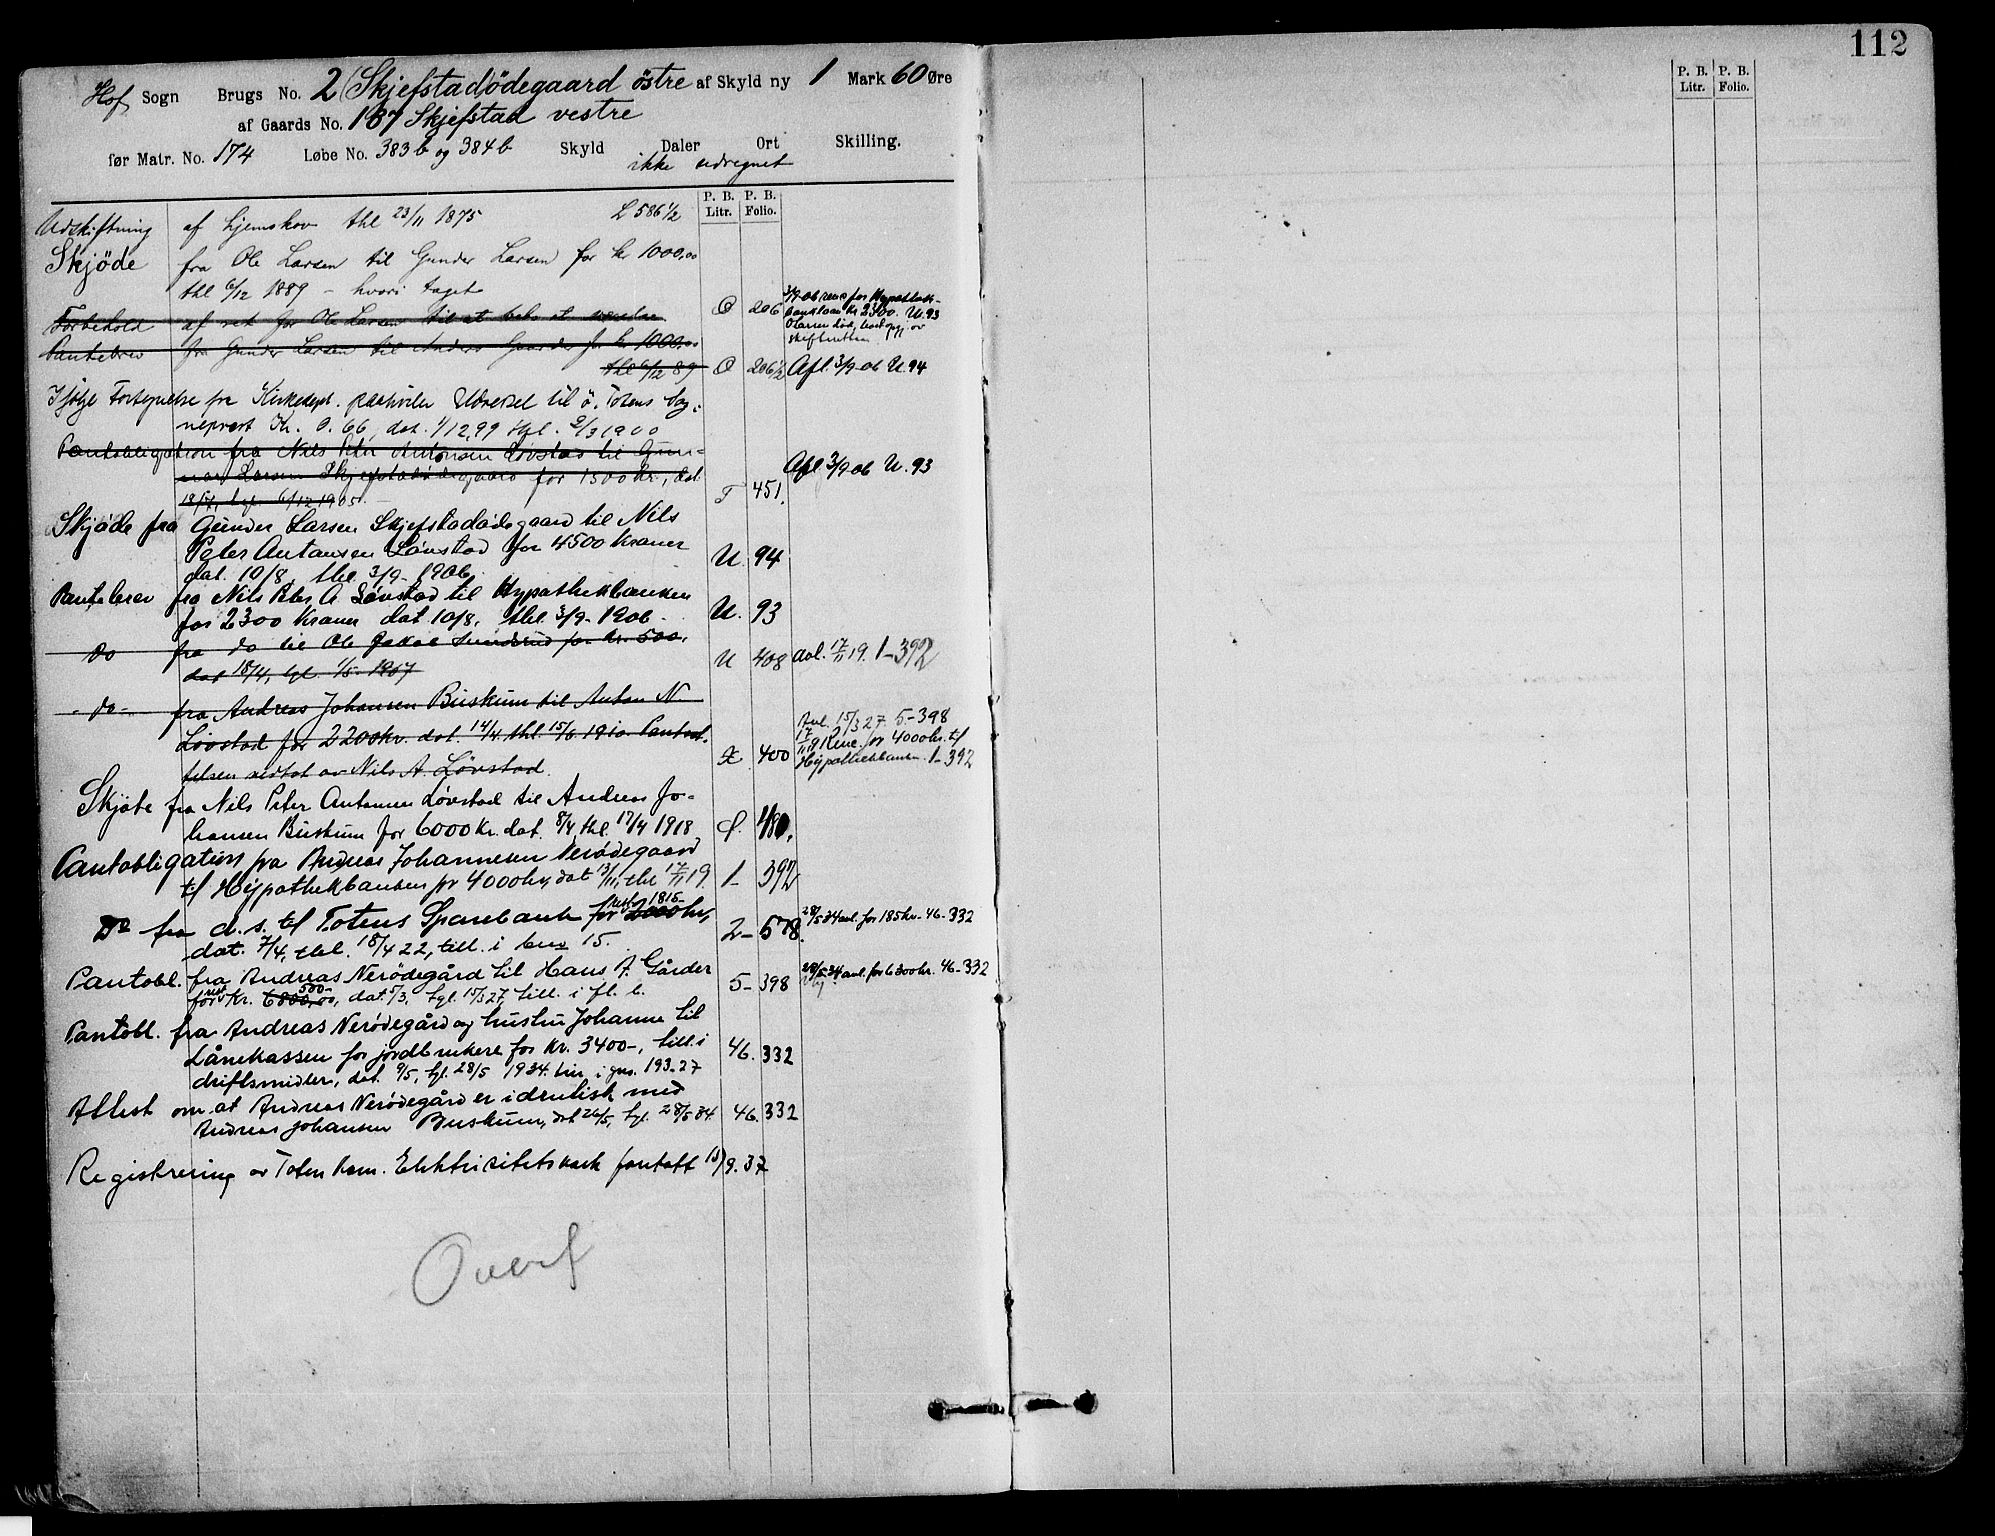 112
Hof Sogn Brugs No. 2 Skjefstadödegaard östre af Skyld ny 1 Mark 60 Øre
af Gaards No. 187 Skjefstad vestre
før Matr. No. 174 Løbe No. 383b og 384b Skyld Daler Ort Skilling.
ikke udregnet
P. B. Litr. P. B. Folio.
P. B. Litr. P. B. Folio.
Udskiftning af Hjemskov thl 23/11 1875 L 586 1/2
Skjöde fra Ole Larsen til Gunder Larsen for kr 1000,00
thl 6/12 1889 - hvori taget
Forbehold af ret for Ole Larsen til at O 206 3/9-06 for Hypothek-
banklaan Kr 2300. U. 93
Pantebrev fra Gunder Larsen til Anders Gaarder for kr 1000,00
thl 6/12 89 O 206 1/2 Afl. 3/9-06 U. 94
Ifölge Fortegnelse fra Kirkedept. paahviler Udredsel til ö. Totens Sog-
neprest Kr. 0.66, dat. 1/12.99 thgl. 2/3 1900
Pantobligation fra Nils Peter Antonsen Lövstad til Gun-
nar Larsen Skjefstadödegaard for 1500 Kr., dat.
18/11, tgl. 6/12 1905. T 451. Afl 3/9-06 U. 93
Skjöde fra Gunder Larsen Skjefstadödegaard til Nils
Peter Antonsen Lövstad for 4500 Kroner
dat. 10/8 thl. 3/9-1906 U. 94
Pantebrev fra Nils Peter A. Lövstad til Hypothekbanken
for 2300 Kroner dat 10/8, thl. 3/9-1906. U. 93
Do fra do til Ole Jakob Sundsrud for Kr. 500,
dat 18/4, tgl. 1/5-1907 U 408 avl. 17/11 19. 1-392
-do- fra Andreas Johansen Buskum til Anton N
Lövstad for 2200 kr. dat. 14/4 thl. 15/6 1910
av Nils A. Lövstad. X 400
Avl. 15/3 27. 5-398
17/11 19 for 4000 kr. til
Hypothekbanken 1-392
Skjöte fra Nils Peter Antonsen Lövstad til Andreas Jo-
hansen Buskum for 6000 Kr. dat. 8/4, thl. 17/4 1918
Pantobligation fra Andreas Johannesen Nerödegaard
til Hypothekbanken for 4000 kr, dat 13/11, thl 17/11 19. 1- 392
Do fra d. s. til Totens Sparebank for 2000 kr, 1815-
dat. 7/4, thl. 18/4 22, till. i bno 15. 2- 578. 28/5 34 avl. for 185 kr. 46-332
Pantobl. fra Andreas Nerödegård til Hans A. Gårder
for Kr. 6800,00, 500- dat. 5/3, tgl. 15/3 27, till. i fl. b. 5- 398 28/5-34 avl. for 6300 kr. 46-332
Pantobl. fra Andreas Nerödegård og hustru Johanne til
Lånekassen for jordbrukere for kr. 3400-, till. i
driftsmidler, dat. 9/5, tgl. 28/5 1934. 46. 332
Attest om at Andreas Nerödegård er identisk med
Andreas Johansen Buskum, dat 26/5, tgl. 28/5 34. 46. 332
Registrering av Toten kom. Elektrisitetsverk foretatt 15/9. 37
Overf